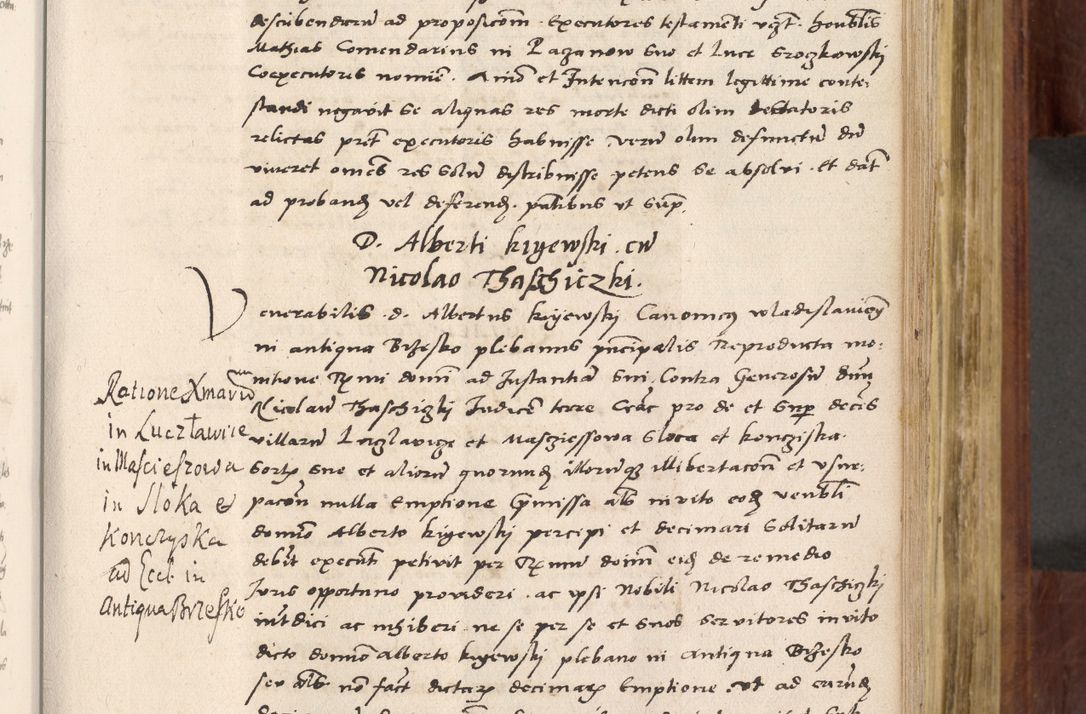 describendarum ad propositiom. Executores testamenti vzt. honblis
Mathias Comendarius in Pazanow suo et Luce Sroczkowski
Coexecutoris nomie. Animo et Intencon littem legittime conte:
standi negavit se aliquas res morte dicti olim testatoris
relictas pret executoris habuisse verum olim defunctum dum
viveret omnes res solum distribuisse petens se absolvi. et dat
ad proband vel deferend. partibus ut supra.
D. Alberti kryewski. cum
Nicolao Thaschiczki.
Venerabilis. d. Albertus kryewski Canonicus wladislavien
in antiqua Brzesko plebanus principalis Reproducta mo:
nitione Rmi domini ad Instantiam sui Contra Generosum dnm
Nicolaum Thaschiczki Iudicem terre Crac pro de et super decis
villarum Luczlavicze et Mascziessowa Sloca et konczyska
Sortis sue et aliorum quorumd illorumque illibertacon et usur:
pacon nulla Emptione premissa als invito eod venbli
domino Alberto kryewski percipi et decimari solitarum
debit execut petivit per Rmum dominum eid de remedio
Iuris opportuno provideri. ac ipsi Nobili Nicolao Thaschiczki
interdici ac inhiberi ne se per se et suos servitores invito
dicto domino Alberto kryewski plebano in Antiqua Brzesko
seu als non fact dictarum decimarum Emptione. ut ad earund
Ratione Xmarum
in Luczławice
in Mascieszowa
in Sloka &
Konczyska
ad Eccl. in
Antiqua Brzesko